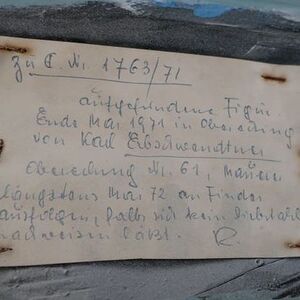 zu C. Nr. 1763/71
aufgefundene Figur
Ende Mai 1971 in Oberedung
von Karl Erbschwendtner
Oberedung Nr. 61,
längstens Mai 72 an Finder
ausfolgen, falls sich kein Diebstahl
nachweisen läßt. R.